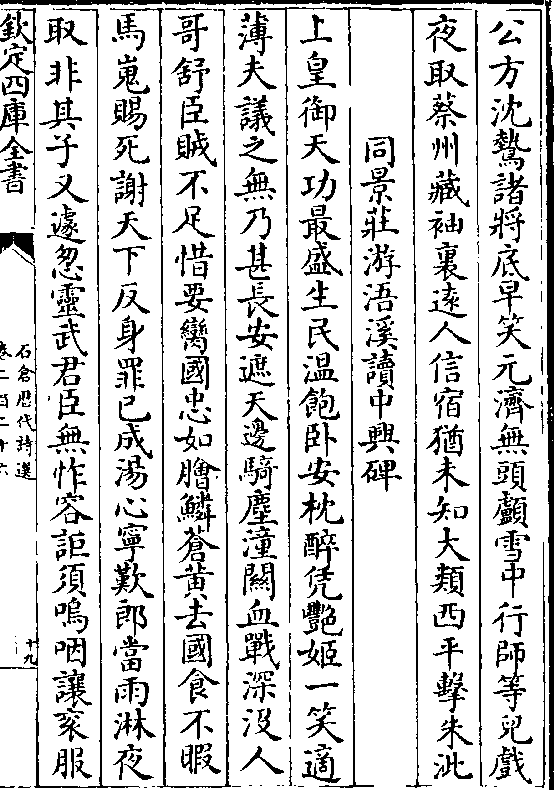 公方沈鷙諸將底早笑元濟無頭顱雪中行師等兒戲
夜取蔡州藏袖裏逺人信宿猶未知大類西平擊朱泚
同景莊游浯溪讀中興碑
上皇御天功最盛生民温飽卧安枕醉凭艷姬一笑適
薄夫議之無乃甚長安遮天邊騎塵潼關血戰深沒人
哥舒臣賊不足惜要臠國忠如膾鱗蒼黄去國食不暇
馬嵬賜死謝天下反身罪已成湯心寧歎郎當雨淋夜
取非其子又遽怱靈武君臣無怍容詎須嗚咽讓衮服
欽定四庫全書
石倉歴代詩選
卷二百二十六
十九